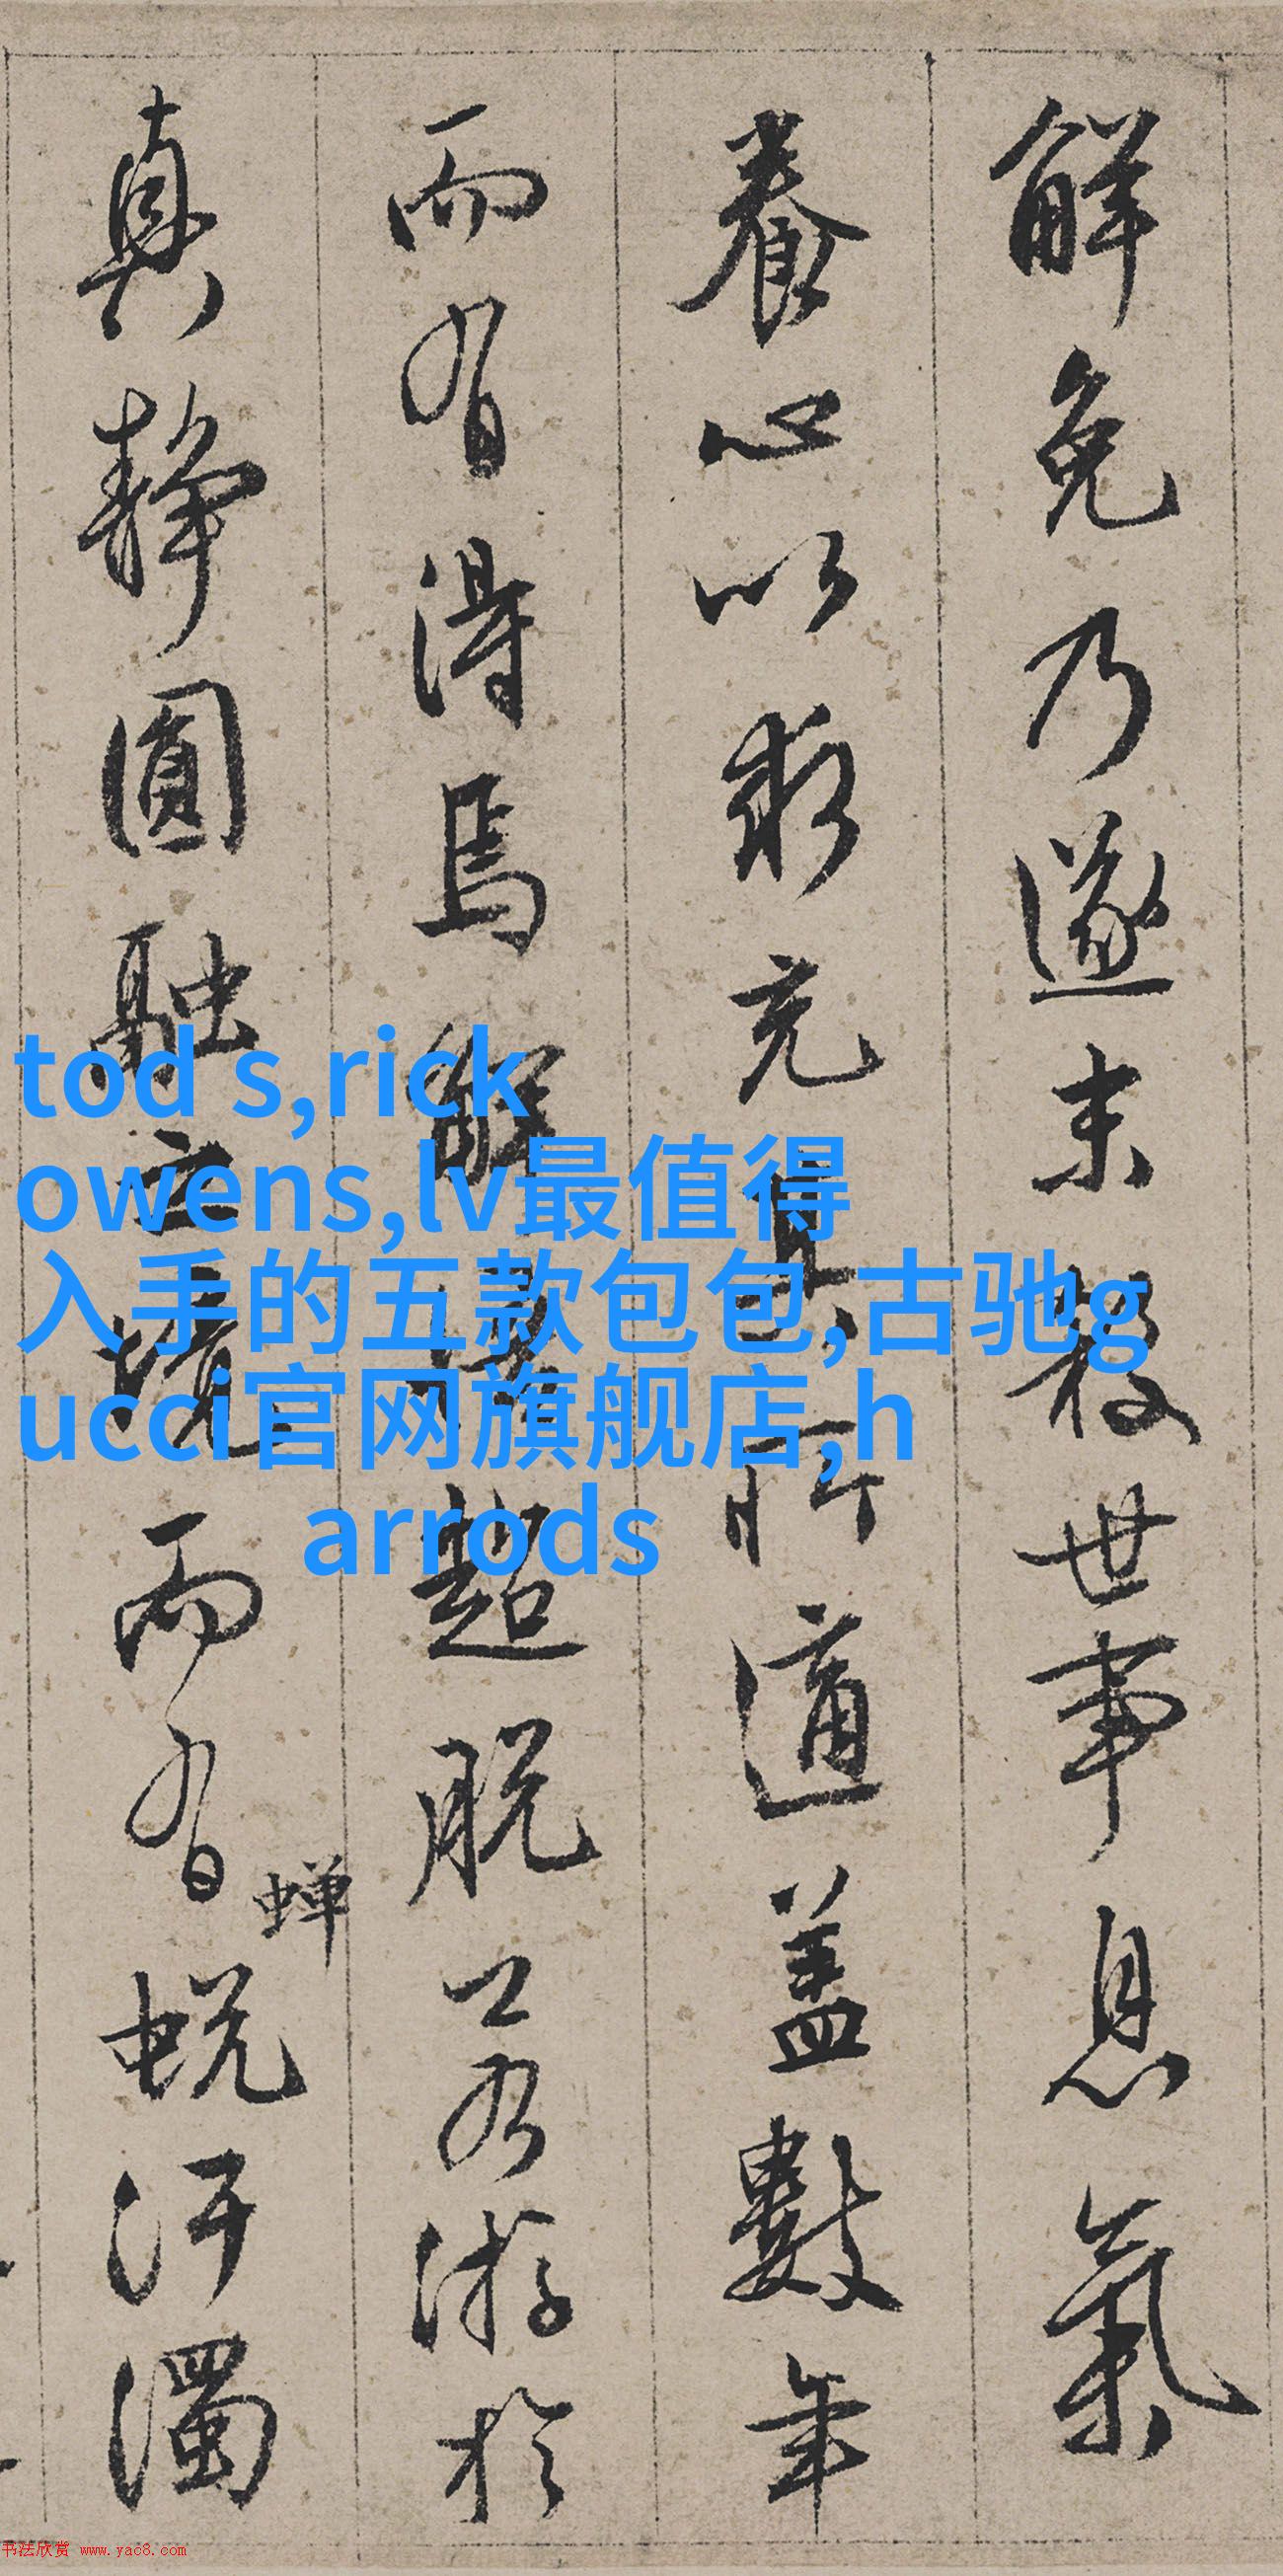 解免乃遂末殺世事息氣
養心以求充其所適蓋數年
而有得焉解
超脱又若游於
真靜圓融之境而有蟬蜕汙濁
tod s,rick
owens,lv最值得
入手的五款包包,古驰g
ucci官网旗舰店,h
arrods
书法欣赏 www.yac8.com